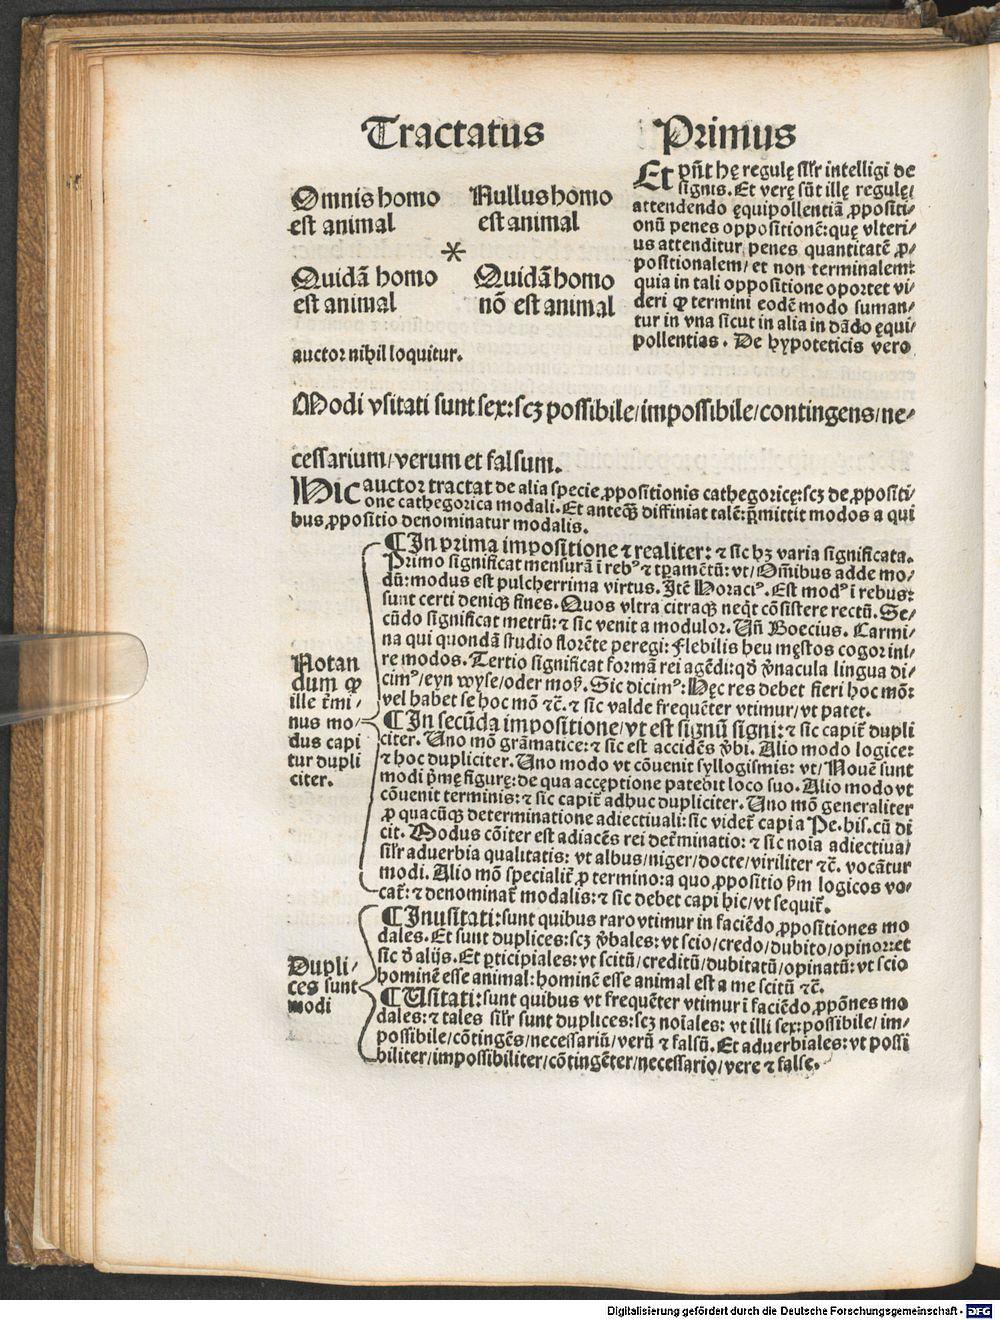 Tractatus Primus
Omnis homo
est animal
Nullus homo
est animal
*
Quidã homo
est animal
Quidã homo
nõ est animal
Et pñt hę regulę sĩlr intelligi de
signis. Et verę sũt illę regulę/
attendendo ęquipollentiã ꝓpositi-
onũ penes oppositionẽ: quę vlteri/
us attenditur penes quantitatẽ ꝓ-
positionalem/ et non terminalem:
quia in tali oppositione oportet vi/
deri ꝙ termini eodẽ modo suman/
tur in vna sicut in alia in dãdo ęqui/
pollentias. De hypoteticis vero
auctor nihil loquitur.
Modi vsitati sunt sex: scꝫ possibile/ impossibile/ contingens/ ne-
cessarium/ verum et falsum.
Hic auctor tractat de alia specie ꝓpositionis cathegoricę: scꝫ de ꝓpositi/
one cathegorica modali. Et anteꝙ̃ diffiniat talẽ: p̃mittit modos a qui
bus ꝓpositio denominatur modalis.
Notan
dum ꝙ
ille t̃mi/
nus mo/
dus capi
tur dupli
citer.
¶ In prima impositione ⁊ realiter: ⁊ sic hꝫ varia significata.
Primo significat mensurã ĩ rebꝰ ⁊ tp̃amẽtũ: vt/ Om̃ibus adde mo/
dũ: modus est pulcherrima virtus. Itẽ Horaciꝰ. Est modꝰ ĩ rebus:
sunt certi deniqꝫ fines. Quos vltra citraqꝫ neq̃t cõsistere rectũ. Se/
cũdo significat metrũ: ⁊ sic venit a modulor. Uñ Boecius. Carmi/
na qui quondã studio florẽte peregi: flebilis heu męstos cogor ini/
re modos. Tertio significat formã rei agẽdi: qõ ṽnacula lingua di/
cimꝰ/ eyn wyse/ oder moß. Sic dicimꝰ: Hęc res debet fieri hoc mõ:
vel habet se hoc mõ ⁊c̃. ⁊ sic valde frequẽter vtimur/ vt patet.
¶ In secũda impositione/ vt est signũ signi: ⁊ sic capit̃ dupli
citer. Uno mõ grãmatice: ⁊ sic est accidẽs ṽbi. Alio modo logice:
⁊ hoc dupliciter. Uno modo vt cõuenit syllogismis: vt/ Nouẽ sunt
modi p̃mę figurę: de qua accęptione patebit loco suo. Alio modo vt
cõuenit terminis: ⁊ sic capit̃ adhuc dupliciter. Uno mõ generaliter
ꝓ quacũqꝫ determinatione adiectiuali: sic videt̃ capi a Pe. his. cũ di
cit. Modus cõiter est adiacẽs rei det̃minatio: ⁊ sic noĩa adiectiua/
sĩlr aduerbia qualitatis: vt albus/ niger/ docte/ viriliter ⁊c̃. vocãtur
modi. Alio mõ specialit̃ ꝓ termino: a quo ꝓpositio ẜm logicos vo-
cat̃: ⁊ denominat̃ modalis: ⁊ sic debet capi hic/ vt sequit̃.
Dupli/
ces sunt
modi
¶ Inusitati: sunt quibus raro vtimur in faciẽdo ꝓpositiones mo
dales. Et sunt duplices: scꝫ ṽbales: vt scio/ credo/ dubito/ opinor: et
sic d̃ alijs. Et ꝑticipiales: vt scitũ/ creditũ/ dubitatũ/ opinatũ: vt scio
hominẽ esse animal: hominẽ esse animal est a me scitũ ⁊c̃.
¶ Usitati: sunt quibus vt frequẽter vtimur ĩ faciẽdo ꝓpõnes mo
dales: ⁊ tales sĩlr sunt duplices: scꝫ noĩales: vt illi sex: possibile/ im/
possibile/ cõtingẽs/ necessariũ/ verũ ⁊ falsũ. Et aduerbiales: vt possi
biliter/ impossibiliter/ cõtingẽter/ necessario/ vere ⁊ false.
Digitalisierung gefördert durch die Deutsche Forschungsgemeinschaft - DFG